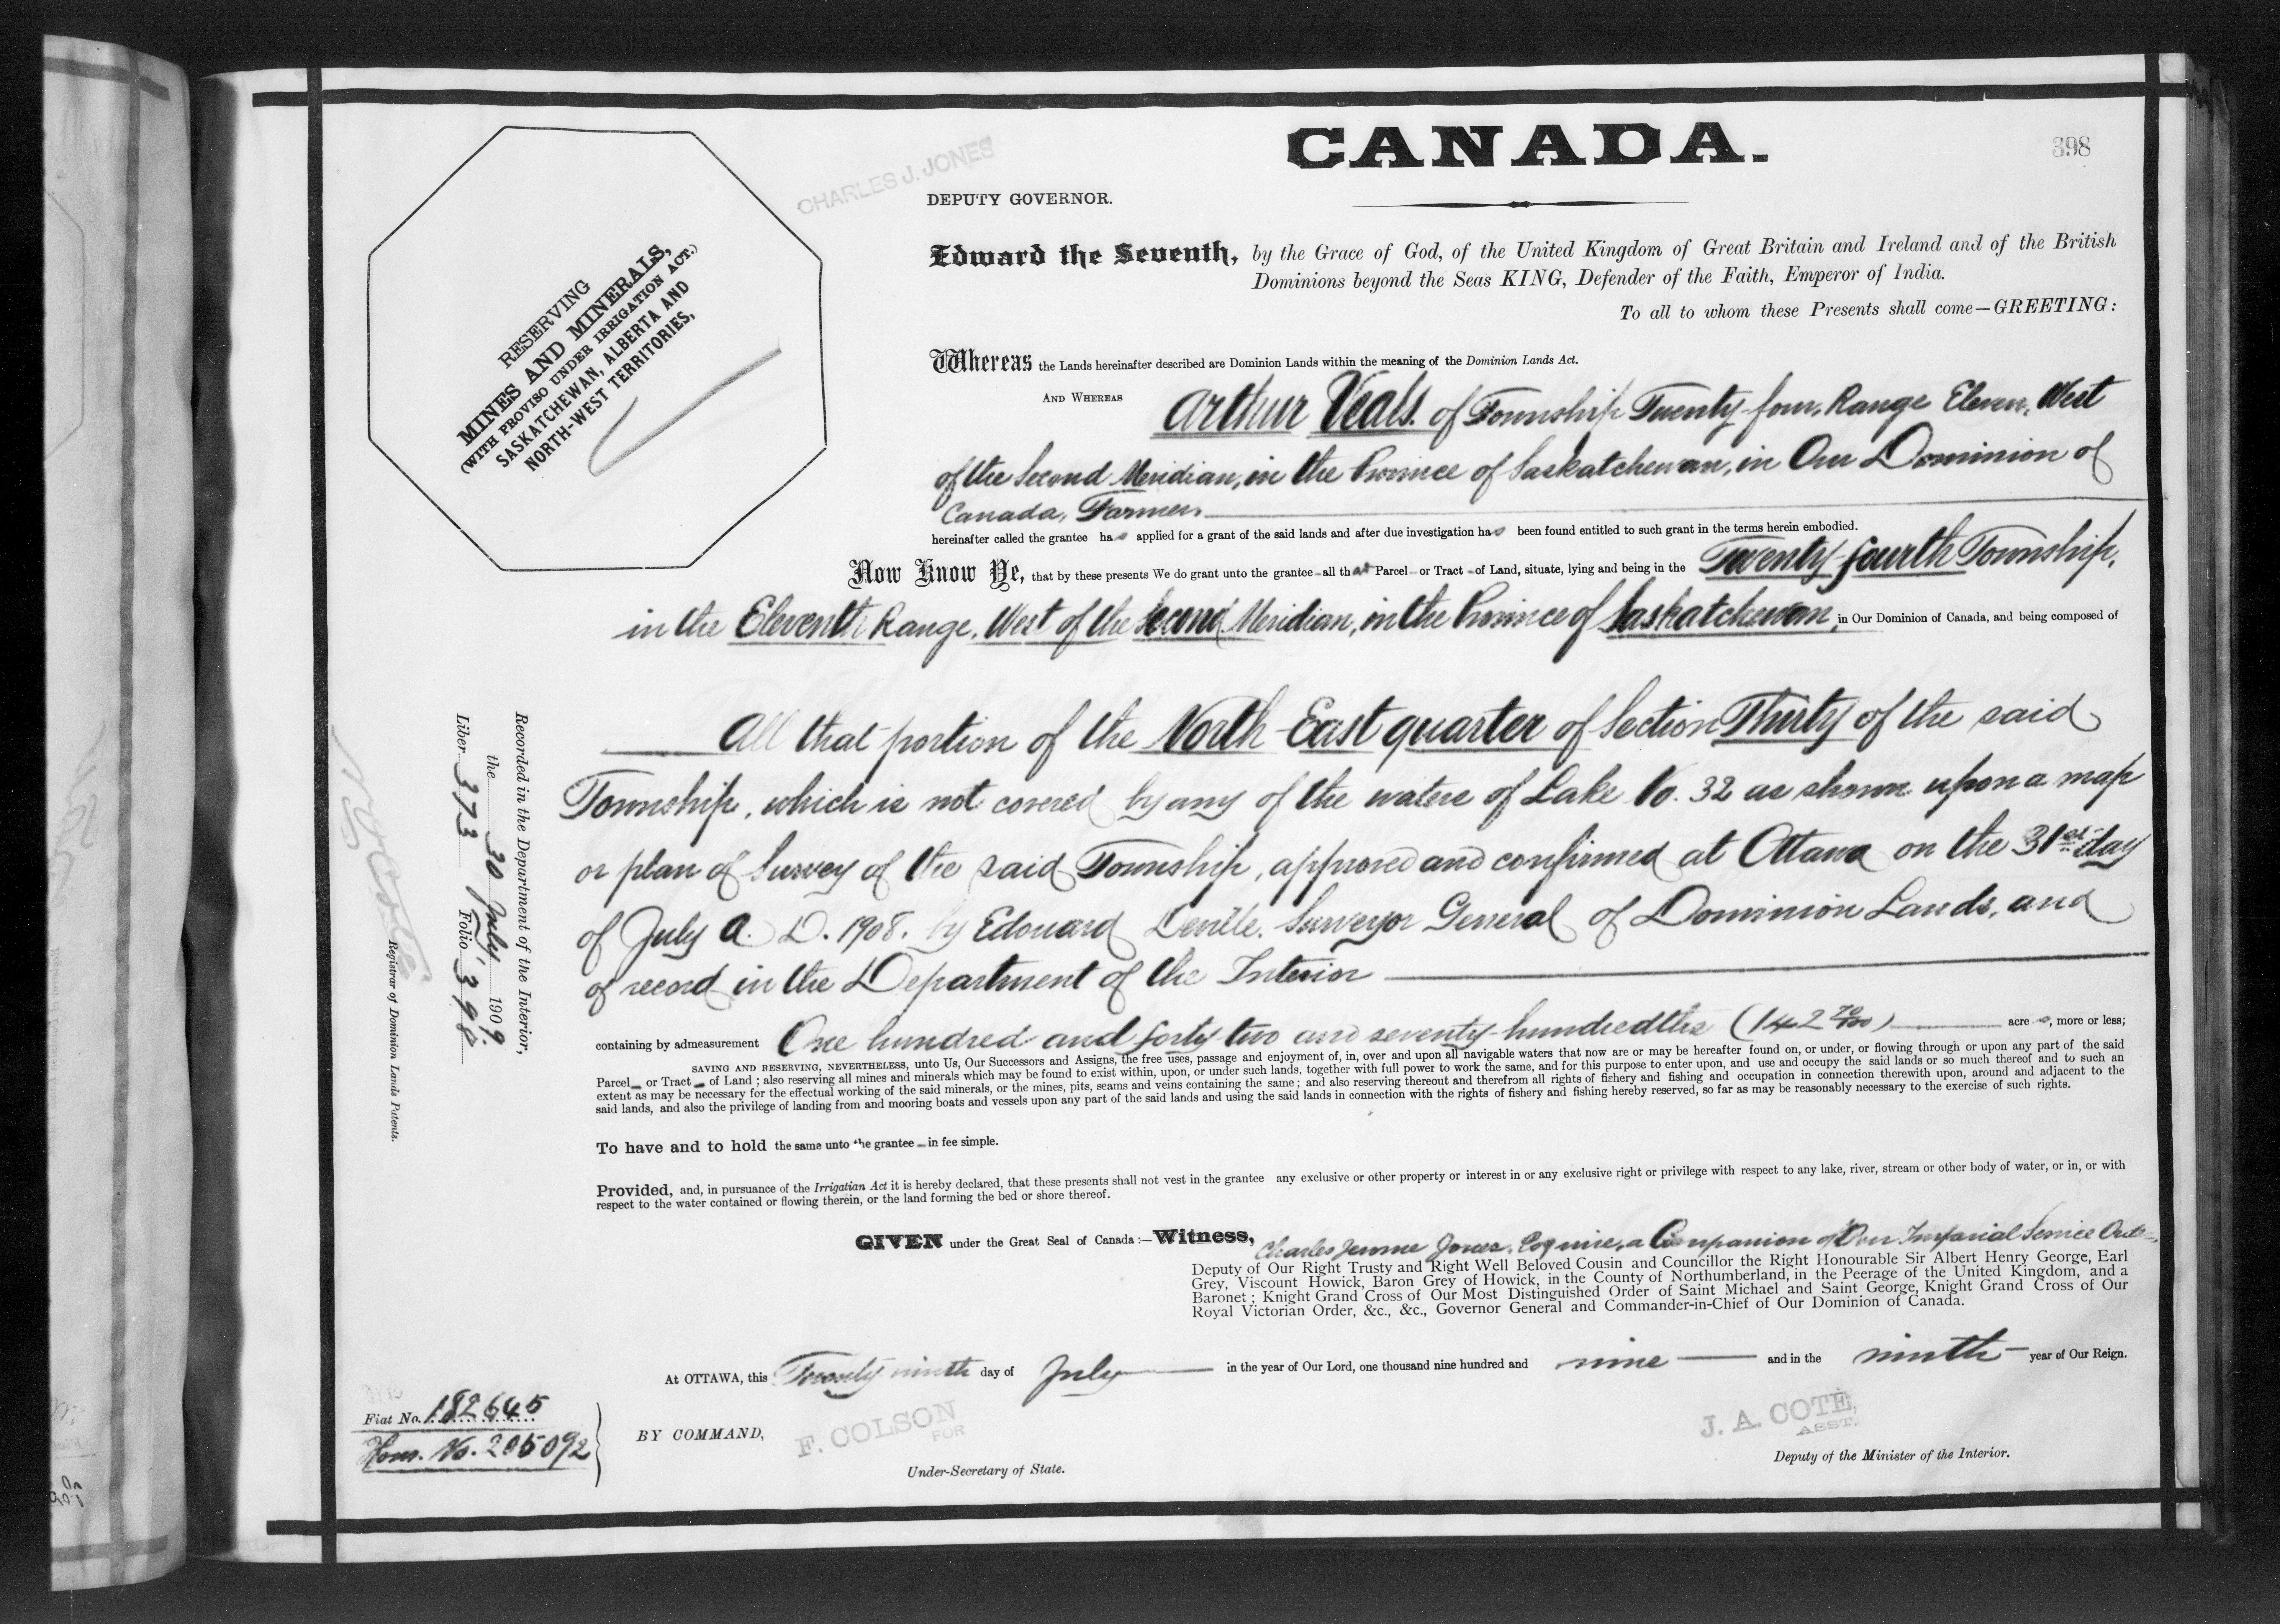 CANADA.
398
CHARLES J. JONES
DEPUTY GOVERNOR.
RESERVING
MINES AND MINERALS,
(WITH PROVISO UNDER IRRIGATION ACT.)
SASKATCHEWAN, ALBERTA AND
NORTH-WEST TERRITORIES,
Edward the Seventh, by the Grace of God, of the United Kingdom of Great Britain and Ireland and of the British
Dominions beyond the Seas KING, Defender of the Faith, Emperor of India.
To all to whom these Presents shall come—GREETING:
Whereas the Lands hereinafter described are Dominion Lands within the meaning of the Dominion Lands Act.
AND WHEREAS Arthur Veals. of Township Twenty-four, Range Eleven, West
of the Second Meridian, in the Province of Saskatchewan, in Our Dominion of
Canada, Farmer,
hereinafter called the grantee has applied for a grant of the said lands and after due investigation has been found entitled to such grant in the terms herein embodied.
Now Know Ye, that by these presents We do grant unto the grantee all that Parcel or Tract of Land, situate, lying and being in the Twenty-fourth Township,
in the Eleventh Range, West of the Second Meridian, in the Province of Saskatchewan, in Our Dominion of Canada, and being composed of
All that portion of the North-East quarter of Section Thirty of the said
Township, which is not covered by any of the waters of Lake No. 32 as shown upon a map
or plan of Survey of the said Township, approved and confirmed at Ottawa on the 31st day
of July A. D. 1908. by Edouard Deville. Surveyor General of Dominion Lands, and
of record in the Department of the Interior
containing by admeasurement One hundred and forty two and seventy-hundredths (142 70/100) acres, more or less;
SAVING AND RESERVING, NEVERTHELESS, unto Us, Our Successors and Assigns, the free uses, passage and enjoyment of, in, over and upon all navigable waters that now are or may be hereafter found on, or under, or flowing through or upon any part of the said
Parcel or Tract of Land; also reserving all mines and minerals which may be found to exist within, upon, or under such lands, together with full power to work the same, and for this purpose to enter upon, and use and occupy the said lands or so much thereof and to such an
extent as may be necessary for the effectual working of the said minerals, or the mines, pits, seams and veins containing the same; and also reserving thereout and therefrom all rights of fishery and fishing and occupation in connection therewith upon, around and adjacent to the
said lands, and also the privilege of landing from and mooring boats and vessels upon any part of the said lands and using the said lands in connection with the rights of fishery and fishing hereby reserved, so far as may be reasonably necessary to the exercise of such rights.
To have and to hold the same unto the grantee in fee simple.
Provided, and, in pursuance of the Irrigation Act it is hereby declared, that these presents shall not vest in the grantee any exclusive or other property or interest in or any exclusive right or privilege with respect to any lake, river, stream or other body of water, or in, or with
respect to the water contained or flowing therein, or the land forming the bed or shore thereof.
GIVEN under the Great Seal of Canada:—Witness, Charles Jerome Jones, Esquire, a Companion of Our Imperial Service Order,
Deputy of Our Right Trusty and Right Well Beloved Cousin and Councillor the Right Honourable Sir Albert Henry George, Earl
Grey, Viscount Howick, Baron Grey of Howick, in the County of Northumberland, in the Peerage of the United Kingdom, and a
Baronet; Knight Grand Cross of Our Most Distinguished Order of Saint Michael and Saint George, Knight Grand Cross of Our
Royal Victorian Order, &c., &c., Governor General and Commander-in-Chief of Our Dominion of Canada.
At OTTAWA, this Twenty ninth day of July in the year of Our Lord, one thousand nine hundred and nine and in the ninth year of Our Reign.
BY COMMAND,
F. COLSON
FOR
Under-Secretary of State.
J. A. COTÉ,
ASST.
Deputy of the Minister of the Interior.
Fiat No. 182645
Hom. No. 205092
Recorded in the Department of the Interior,
the 30 July 1909.
Liber 373 Folio 398
N. O. Coté
Registrar of Dominion Lands Patents.